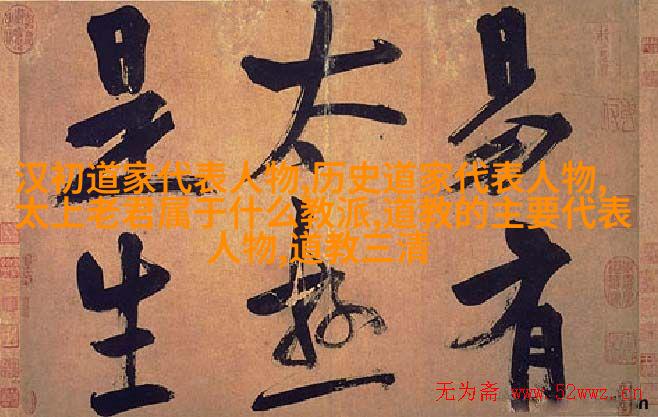 易有
太極
是生
汉初道家代表人物,历史道家代表人物,
太上老君属于什么教派,道教的主要代表
人物,道教三清
无为斋 www.52wwz.cn
n